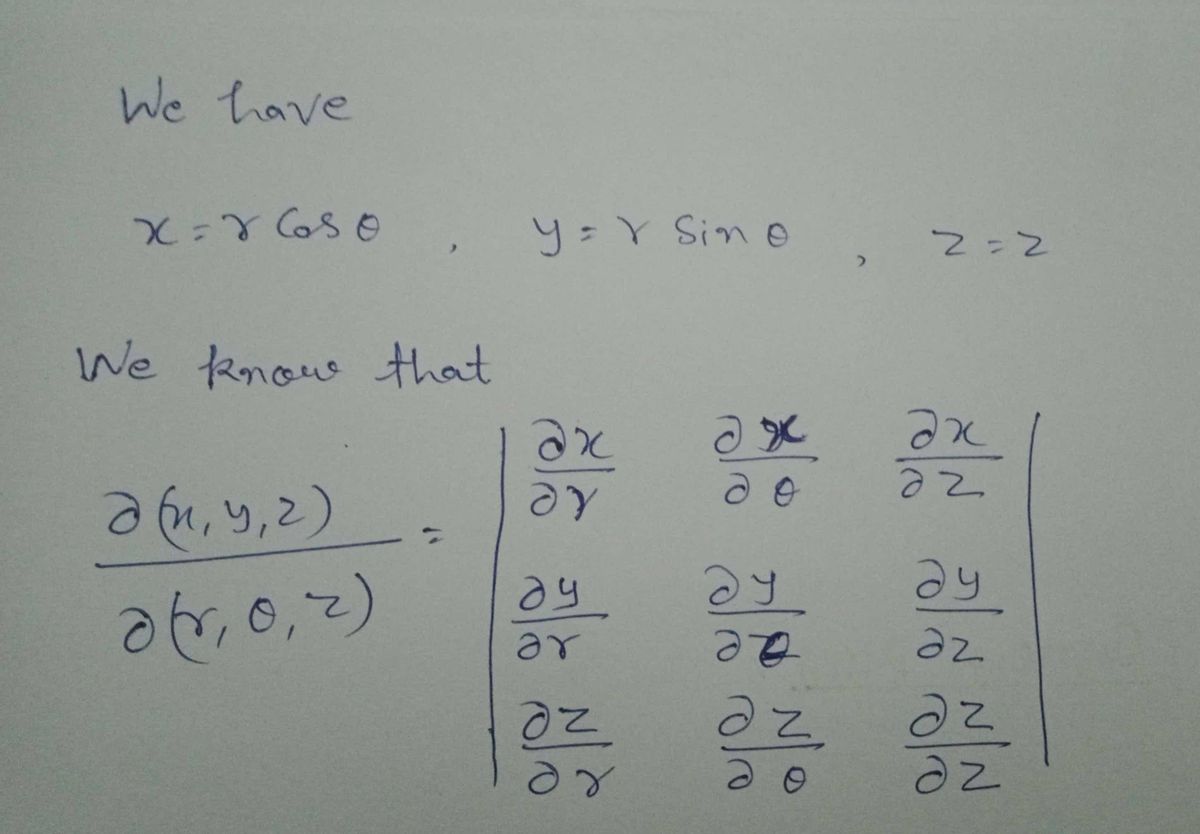 We have
x = r Cos θ , y = r Sin θ , z = z
We know that
∂(x, y, z) / ∂(r, θ, z) = | ∂x/∂r ∂x/∂θ ∂x/∂z |
| ∂y/∂r ∂y/∂θ ∂y/∂z |
| ∂z/∂r ∂z/∂θ ∂z/∂z |